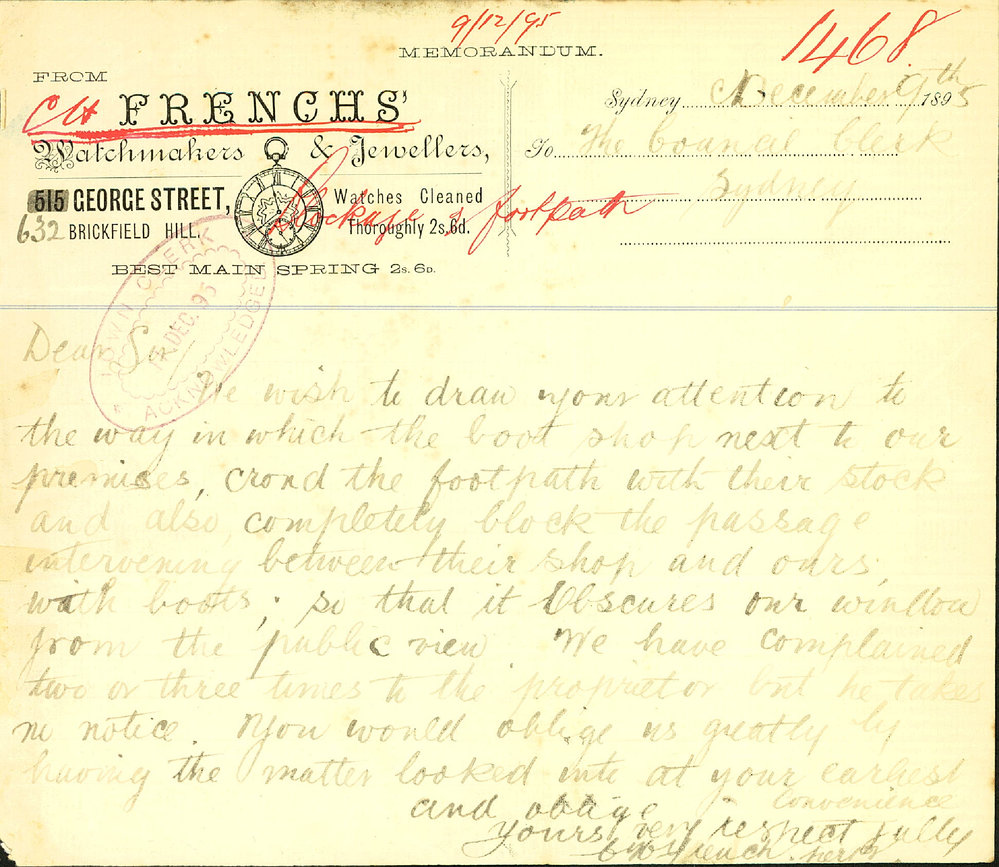 9/12/95
MEMORANDUM.
1468
FROM
CH FRENCHS'
Watchmakers & Jewellers,
515 GEORGE STREET,
632 BRICKFIELD HILL.
Watches Cleaned
Thoroughly 2s. 6d.
BEST MAIN SPRING 2s. 6D.
Blockage of footpath
Sydney December 9th 1895
To The Council Clerk
Sydney
TOWN CLERK
DEC. 95
ACKNOWLEDGED
Dear Sir
We wish to draw your attention to
the way in which the boot shop next to our
premises, crond the footpath with their stock
and also, completely block the passage
intervening between their shop and ours,
with boots; so that it obscures our window
from the public view. We have complained
two or three times to the proprietor but he takes
no notice. You would oblige us greatly by
having the matter looked into at your earliest
convenience
and oblige
yours very respectfully
French